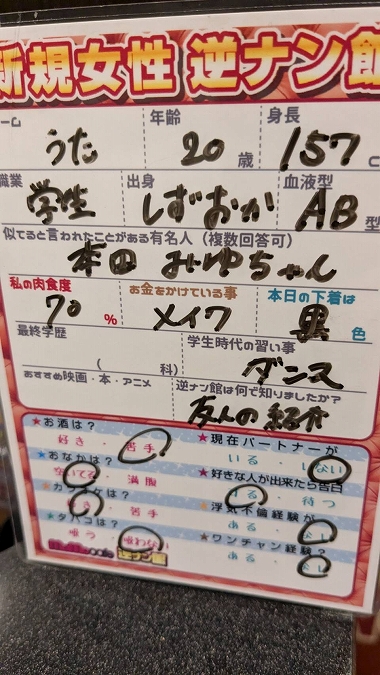 新規女性 逆ナン館
ーム 年齢 身長
うた 20歳 157c
職業 出身 血液型
学生 しずおか AB型
似てると言われたことがある有名人（複数回答可）
本田 みゆちゃん
私の肉食度 お金をかけている事 本日の下着は
70% メイク 黒色
最終学歴 学生時代の習い事
（ 科） ダンス
おすすめ映画・本・アニメ 逆ナン館は何で知りましたか？
友人の紹介
★お酒は？ ★現在パートナーが
好き・苦手 いる・いない
★おなかは？ ★好きな人が出来たら告白
空いてる・満腹 する・待つ
★カラオケは？ ★浮気不倫経験が
好き・苦手 ある・なし
★タバコは？ ★ワンチャン経験？
吸う・吸わない ある・なし
cafe 逆ナン館